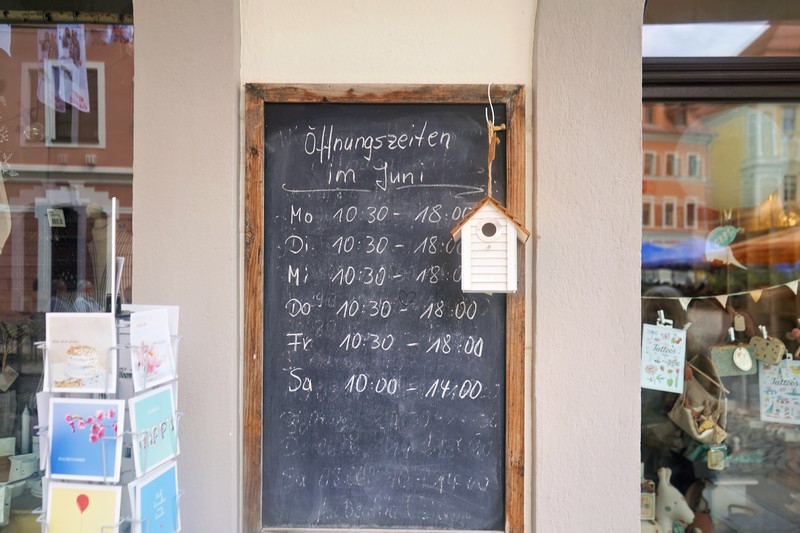 Öffnungszeiten
im Juni
Mo 10:30 - 18:00
Di 10:30 - 18:00
Mi 10:30 - 18:00
Do 10:30 - 18:00
Fr 10:30 - 18:00
Sa 10:00 - 14:00
Tattoos
Tattoos